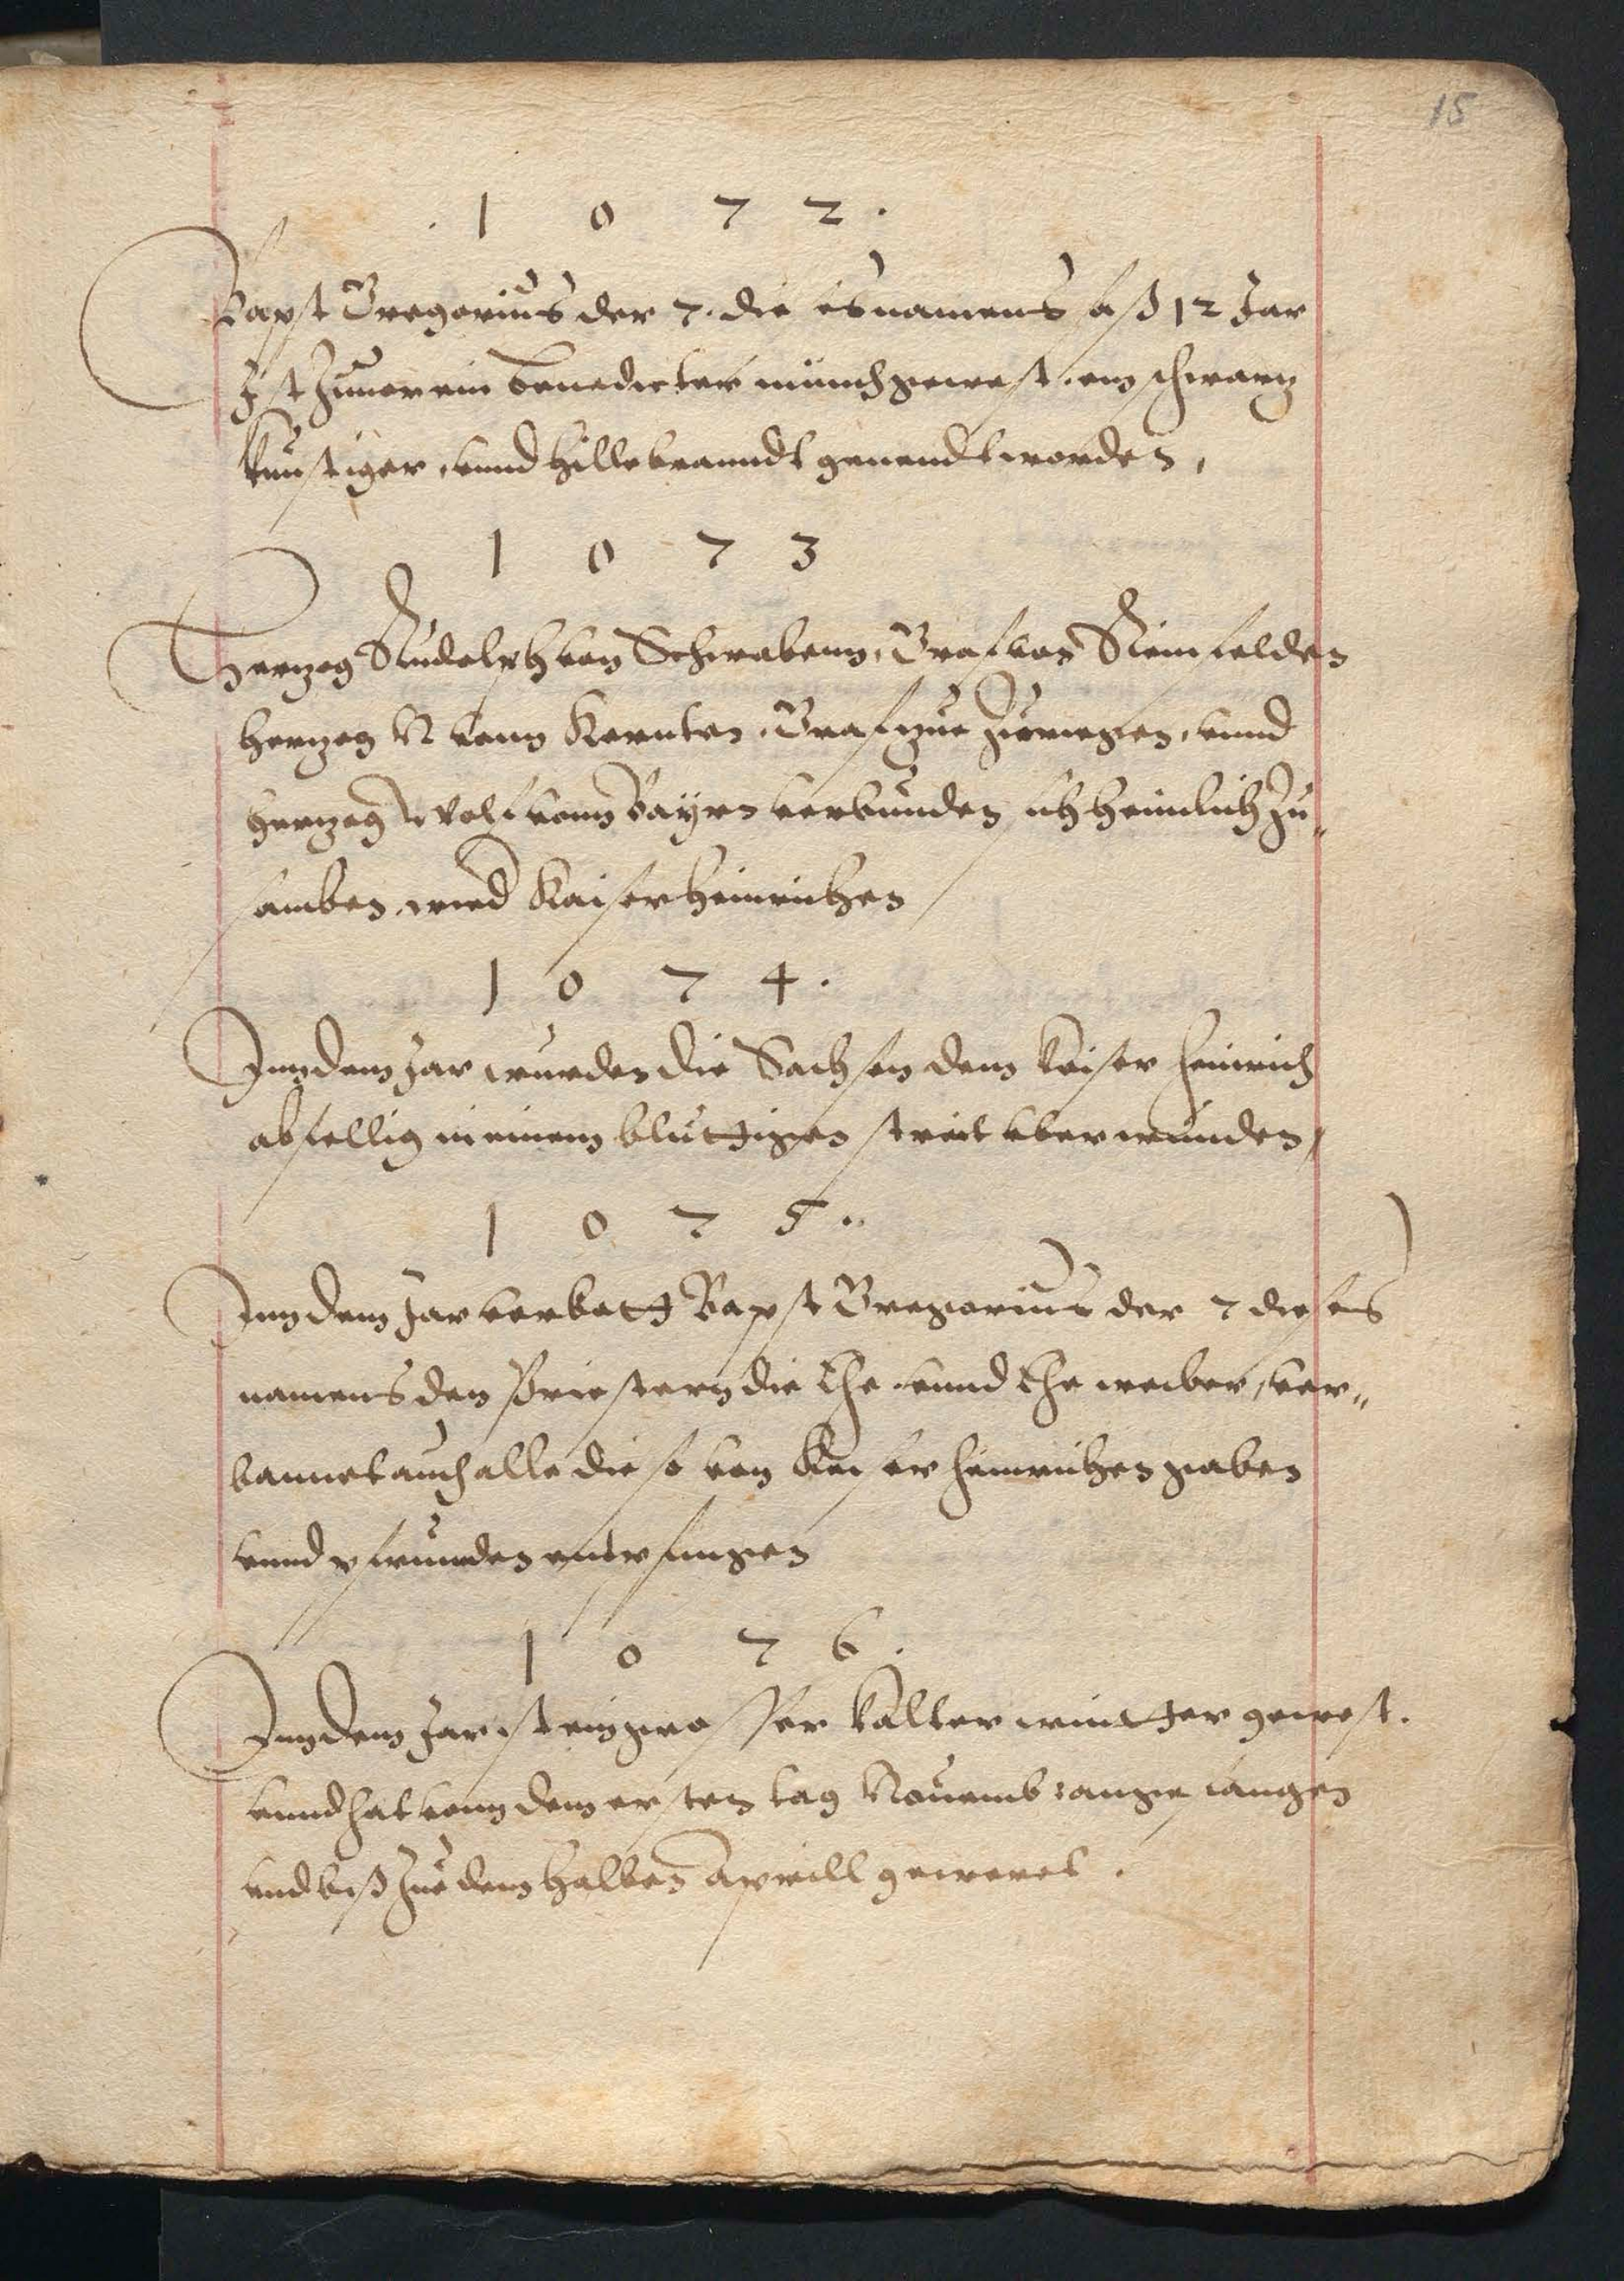 15
1 0 7 2 .
Bapst Gregorius der 7. die es namens saß 12 Jar
Ist Zuuor ein Benedicter münch gewest, ein schwartz
künstiger, vnnd Hillebranndt genendt worden,
1 0 7 3
Hertzog Rudolph von Schwabenn, Graf von Reinfelden
Hertzog N vonn Kernten, Graf zue Zäringen, vnnd
Hertzog Wolf vonn Bayrn verbunden sich heimlich Zu„
samben wied Kaiser Heinrichen
1 0 7 4 .
Inn dem Jar wurden die Sachsen dem keiser Heinrich
abfellig in einem bluttigen streit vberwunden,
1 0 7 5 ..
Inn dem Jar verbott Bapst Gregorius der 7 dieses
namens den Priestern die Ehe vnnd Ehe weiber, ver„
bannet auch alle die so von Keiser Heinrichen gaben
vnnd pfrunden entpfangen
1 0 7 6 .
Inn dem Jar ist ein grosser kalter wintter gewest.
vnnd hat vonn dem ersten tag Nouemb: angefangen
vnd biß Zue dem halben Aprill geweret .